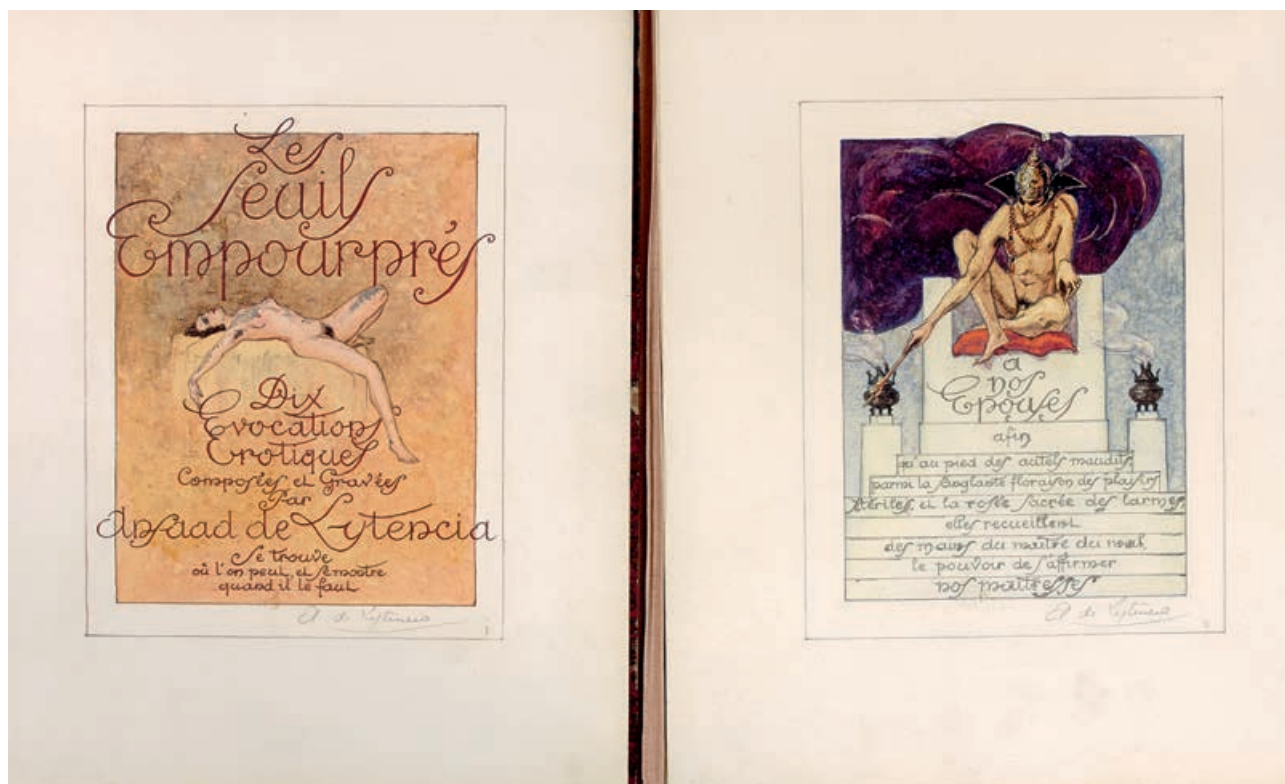 Les
Seuils
Empourprés
Dix
Evocations
Erotiques
Composées et Gravées
Par
Ansaad de Lytencia
se trouve
où l'on peut, et se montre
quand il le faut
A. de Lytencia
1
a
nos
Epouses
afin
qu'au pied des autels maudits
parmi la sanglante floraison des plaisirs
stériles, et la rosée sacrée des larmes,
elles recueillent
des mains du maître du mal,
le pouvoir de s'affirmer
nos maîtresses
A. de Lytencia